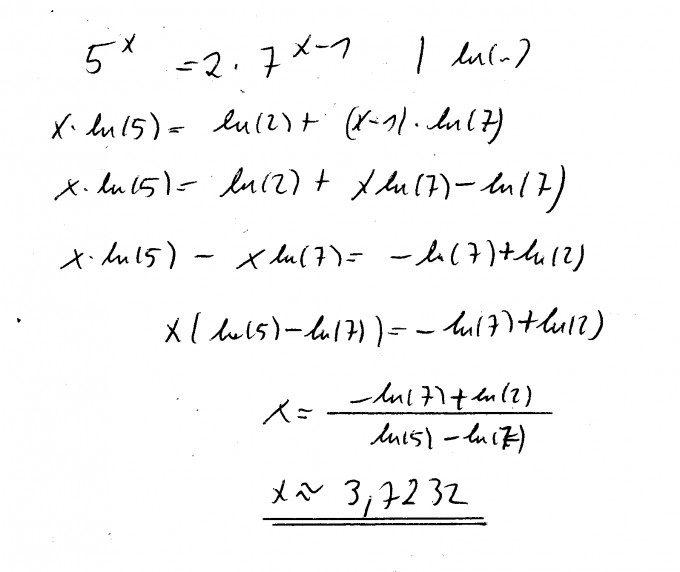 5^x = 2 · 7^(x-1) | ln(..)
x · ln(5) = ln(2) + (x-1) · ln(7)
x · ln(5) = ln(2) + x ln(7) - ln(7)
x · ln(5) - x ln(7) = - ln(7) + ln(2)
x ( ln(5) - ln(7) ) = - ln(7) + ln(2)
x = (- ln(7) + ln(2)) / (ln(5) - ln(7))
x ≈ 3,7232